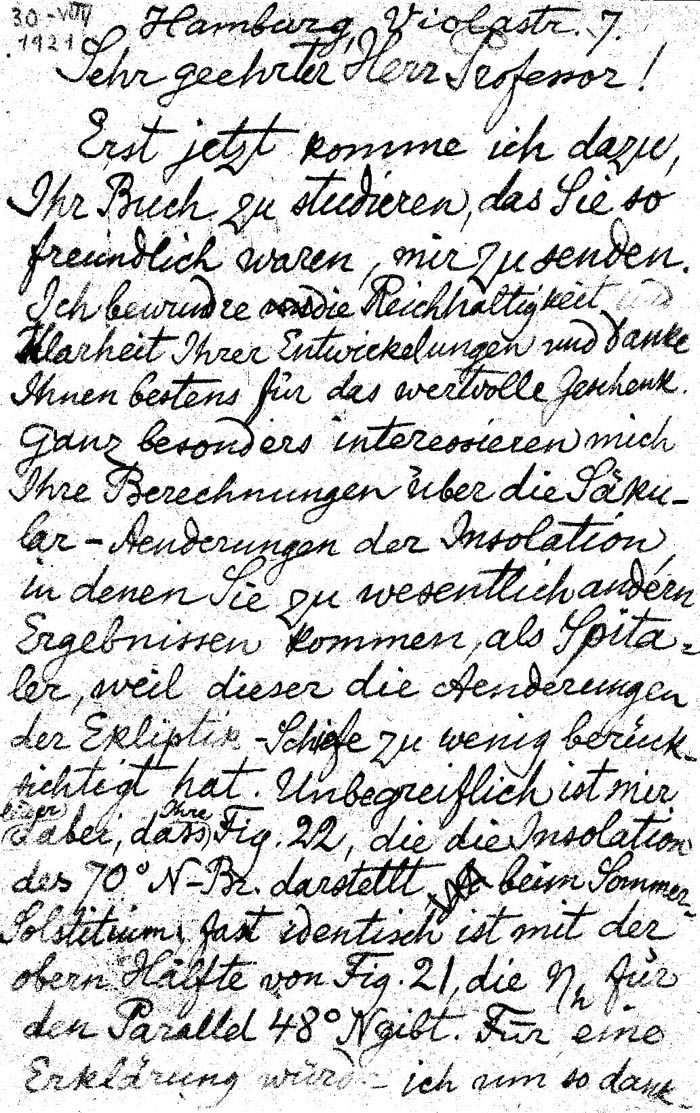 30-VIII
1921
Hamburg, Violastr. 7.
Sehr geehrter Herr Professor!
Erst jetzt komme ich dazu,
Ihr Buch zu studieren, das Sie so
freundlich waren, mir zu senden.
Ich bewundre die Reichhaltigkeit und
Klarheit Ihrer Entwickelungen und danke
Ihnen bestens für das wertvolle Geschenk.
Ganz besonders interessieren mich
Ihre Berechnungen über die Säku-
lar-Aenderungen der Insolation,
in denen Sie zu wesentlich andern
Ergebnissen kommen, als Spita-
ler, weil dieser die Aenderungen
der Ekliptik-Schiefe zu wenig berück-
sichtigt hat. Unbegreiflich ist mir
leider
dabei, dass Ihre Fig. 22, die die Insolation
des 70° N-Br. darstellt, beim Sommer-
Solstitium, fast identisch ist mit der
obern Hälfte von Fig. 21, die ηₕ für
den Parallel 48° N gibt. Für eine
Erklärung würde ich um so dank-